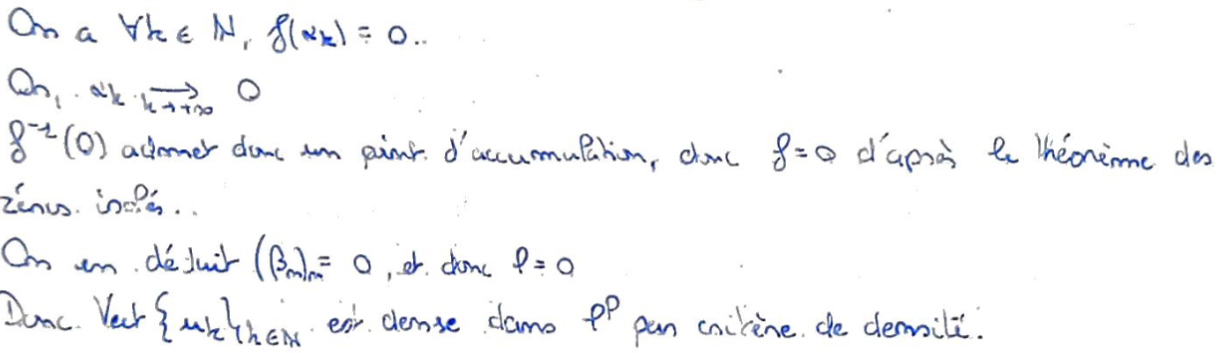 On a ∀k ∈ ℕ, f(αk) = 0..
Or, αk →k→+∞ 0
f⁻¹(0) admet donc un point d'accumulation, donc f=0 d'après le théorème des
zéros isolés..
On en déduit (βm)m = 0, et donc ℓ=0
Donc Vect{uk}k∈ℕ est dense dans ℓᵖ par critère de densité.